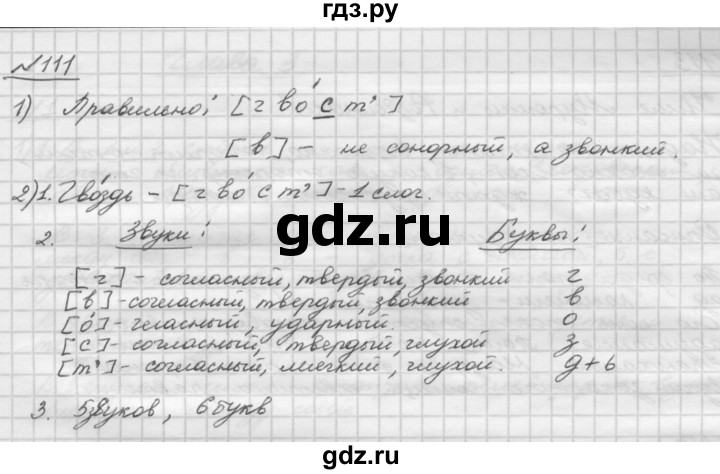 гдз.ру
№111
1) Правильно: [г во́ с т']
[в] - не сонорный, а звонкий.
2) 1. Гвоздь - [г во́ с т'] - 1 слог.
gdz.ru
2. Звуки: Буквы:
[г] - согласный, твердый, звонкий г
[в] - согласный, твердый, звонкий в
[о́] - гласный, ударный. о
[с] - согласный, твердый, глухой з
[т'] - согласный, мягкий, глухой. д+ь
3. 5 звуков, 6 букв
gdz.ru